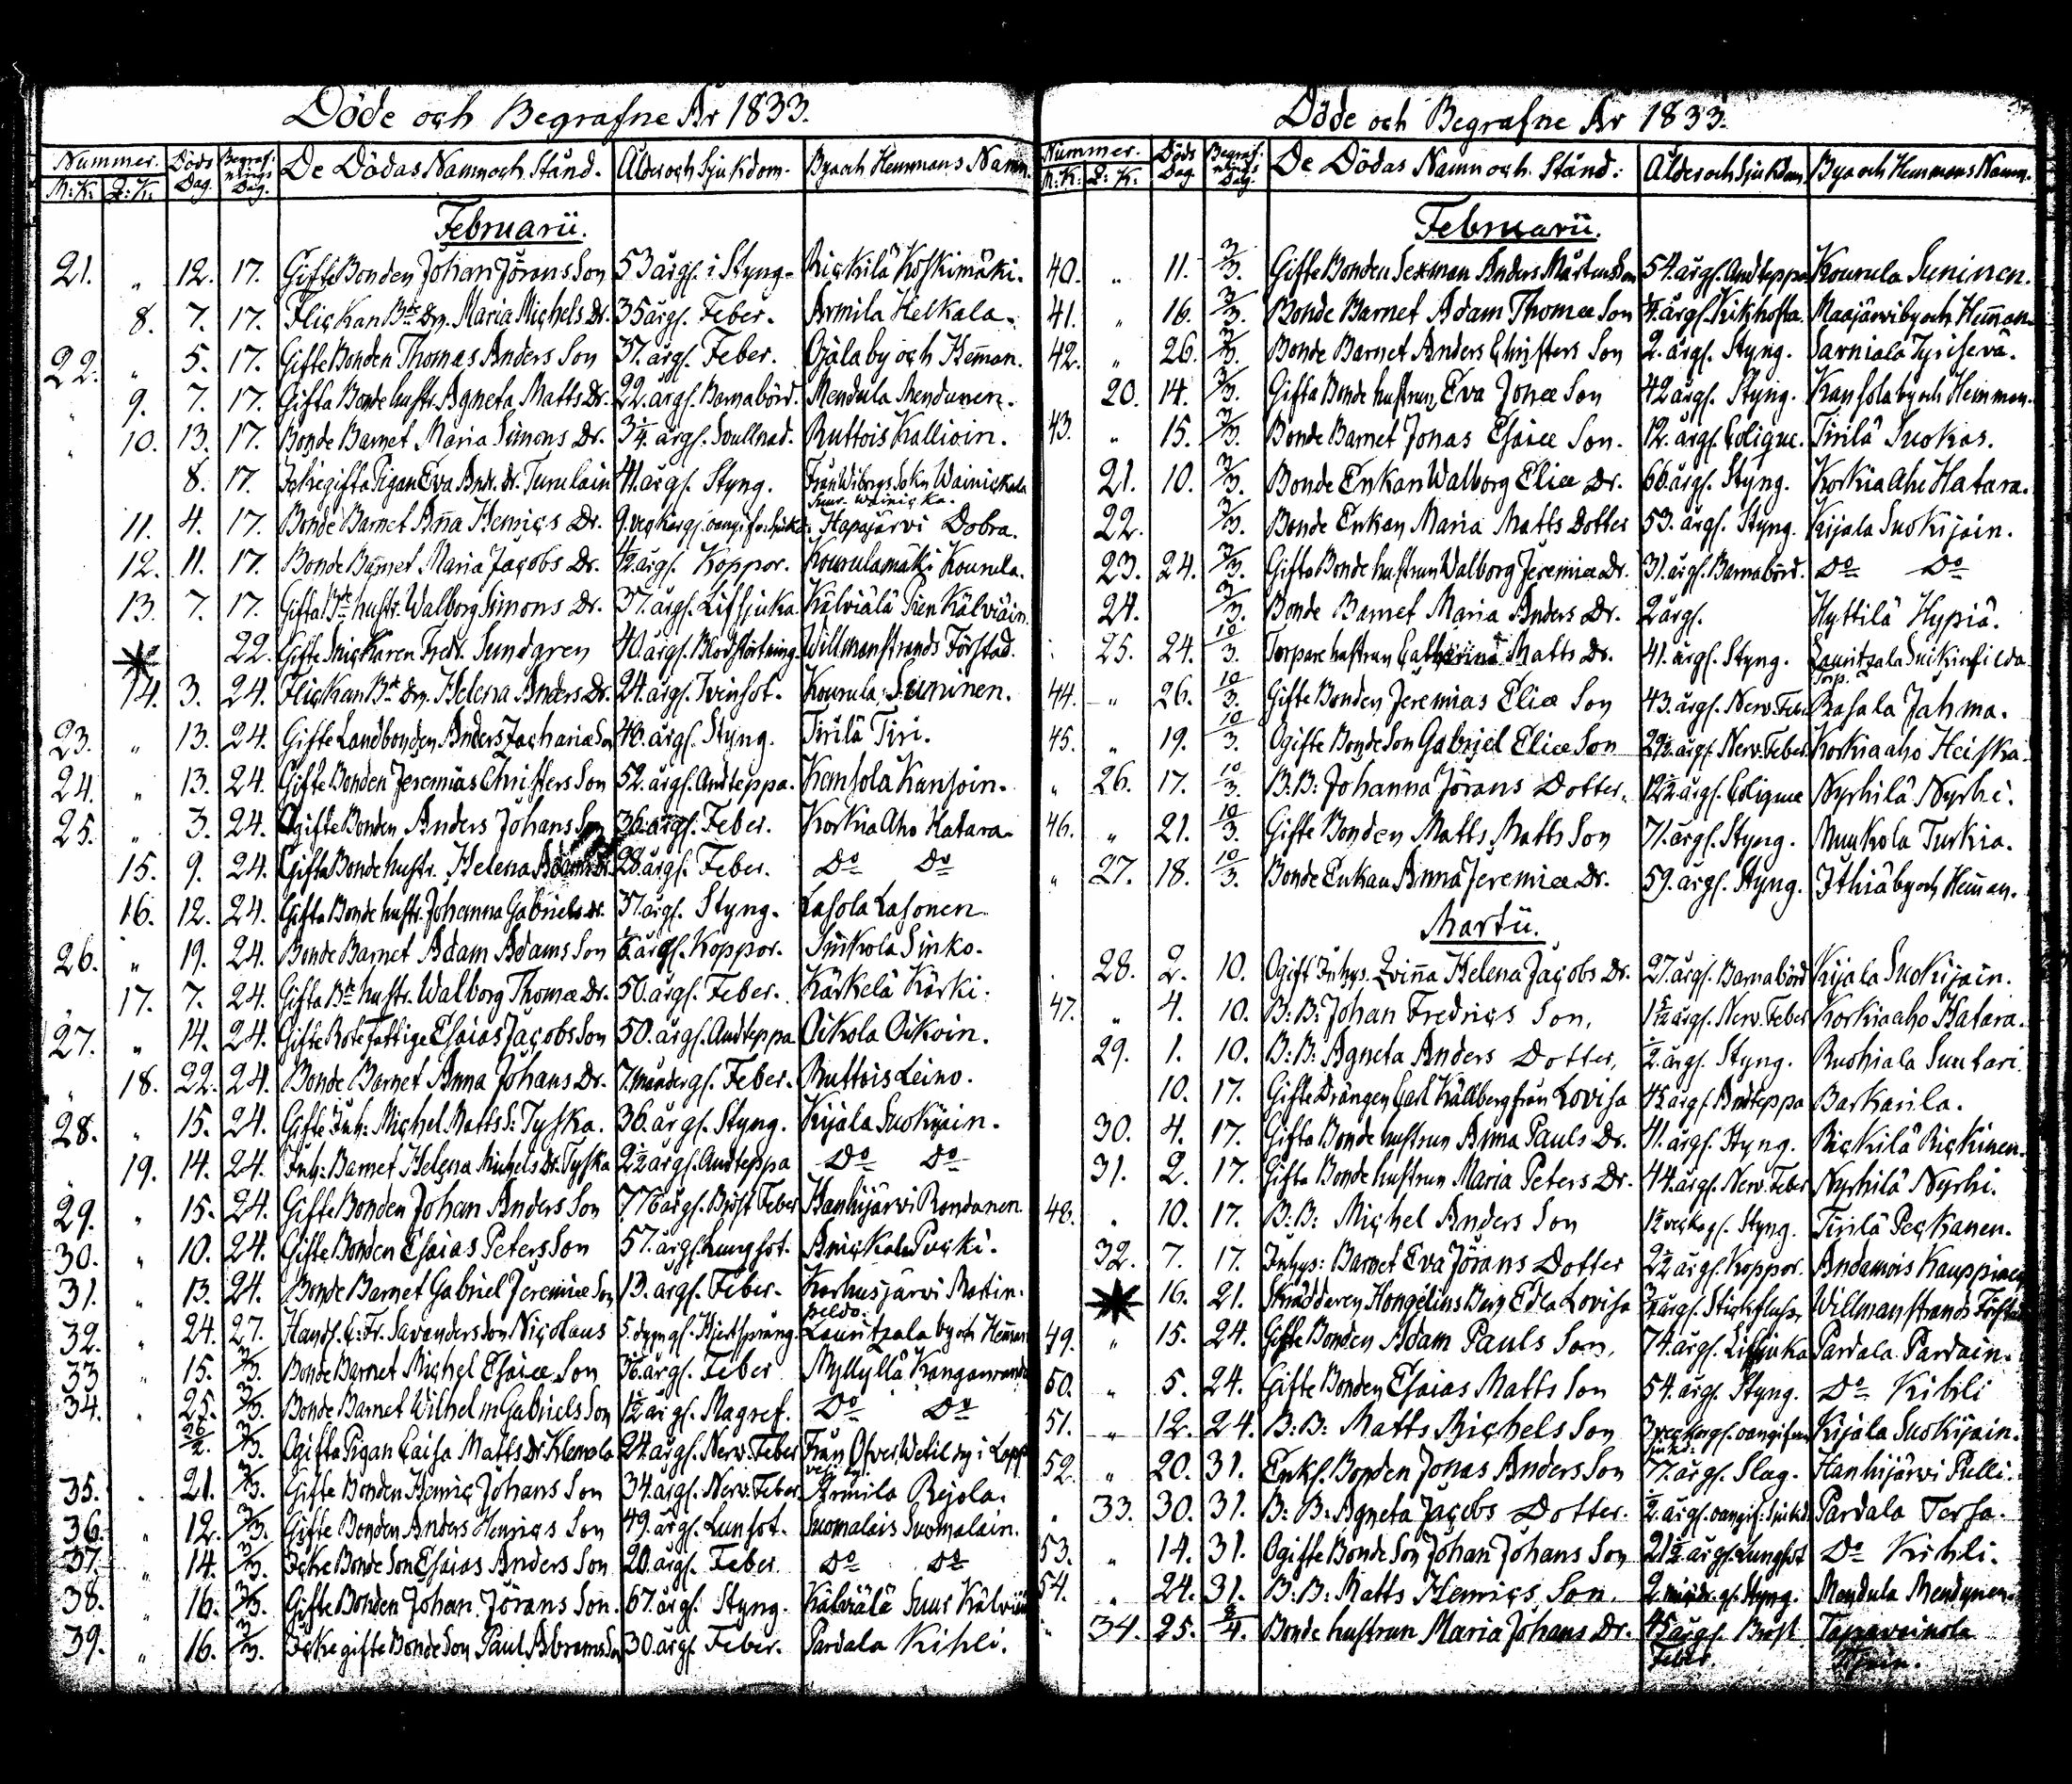 Döde och Begrafne År 1833.
Nummer. Döds Dag. Begrafnings Dag. De Dödas Namn och Stånd. Ålder och Sjukdom. By och Hemmans Namn.
M: K. Q: K.
Februarii.
21. " 12. 17. Gifte Bonden Johan Jörans Son 53 årgl. i Styng. Rickilä Koskimäki.
8. 7. 17. Flickan Bde Dr. Maria Michels Dr. 35 årgl. Feber. Armila Helkala.
22. " 5. 17. Gifte Bonden Thomas Anders Son 37. årgl. Feber. Ojala by och Heman.
" 9. 7. 17. Gifta Bonde hustr. Agneta Matts Dr. 22. årgl. Barnabörd. Mendula Mendunen.
" 10. 13. 17. Bonde Barnet Maria Simons Dr. 3/4. årgl. Svullnad. Ruttois Kallioin.
8. 17. Icke gifta Pigan Eva And. Dr. Turulain 41. årgl. Styng. Från Wiborgs Sokn Wainickala
Suur Wainicka.
11. 4. 17. Bonde Barnet Anna Henrics Dr. 9. veck årgl. oangifn. sjukd. Hapajärvi Dobra.
12. 11. 17. Bonde Barnet Maria Jacobs Dr. 1/2 årgl. Koppor. Kourulamäki Kourula.
13. 7. 17. Gifta Bde hustr. Walborg Simons Dr. 37. årgl. Lifsjuka Kälviälä Pien Kälviäin.
22. Gifte Snickaren Fredr. Sundgren 40. årgl. Blodstörtning. Willmanstrands Förstad.
14. 3. 24. Flickan Bde Dr. Helena Anders Dr. 24. årgl. Tvinsot. Kourula Suninen.
23. " 13. 24. Gifte Landbonden Anders Zachariæ Son 46. årgl. Styng. Tirilä Tiri.
24. " 13. 24. Gifte Bonden Jeremias Christers Son 52. årgl. Andteppa. Kansola Kansoin.
25. " 3. 24. Ogifte Bonden Anders Johans Son 36. årgl. Feber. Korkia Aho Hatara.
15. 9. 24. Gifta Bonde hustr. Helena Adams Dr. 28. årgl. Feber. Do Do
16. 12. 24. Gifta Bonde hustr. Johanna Gabriels Dr. 37. årgl. Styng. Lasola Lasonen
26. " 19. 24. Bonde Barnet Adam Adams Son årgl. Koppor. Sinkola Sinko.
" 17. 7. 24. Gifta Bde hustr. Walborg Thomæ Dr. 50. årgl. Feber. Kärkelä Kärki.
27. " 14. 24. Gifte Rote fattige Esaias Jacobs Son 50. årgl. Andteppa. Oikola Oikoin.
" 18. 22. 24. Bonde Barnet Anna Johans Dr. 7. månder gl. Feber. Ruttois Leino.
28. " 15. 24. Gifte Inh: Michel Matts S: Tyska. 36. årgl. Styng. Kijala Suokijain.
" 19. 14. 24. Inh: Barnet Helena Michels Dr. Tyska 2 1/2 årgl. Andteppa Do Do
29. " 15. 24. Gifte Bonden Johan Anders Son 76 årgl. Bröst Feber Hanhijärvi Rondanen
30. " 10. 24. Gifte Bonden Esaias Peters Son 57. årgl. Lungsot. Anickala Pucki.
31. " 13. 24. Bonde Barnet Gabriel Jeremiæ Son 13. årgl. Feber. Karhusjärvi Martin.
32. " 24. 27. Handl. C: Fr. Savanders Son Nicolaus 5. dygn gl. Hjertsprång. Lauritzala by och Heman
33 " 15. 3/3. Bonde Barnet Michel Esaiæ Son årgl. Feber Myllylä Kangasranda
34. " 25. 3/3. Bonde Barnet Wilhelm Gabriels Son 1 1/2 årgl. Magref. Do Do
26/2. 3/3. Ogifta Pigan Caisa Matts Dr. Klemola 24. årgl. Nerv. Feber Från Öfver Wetil by i Lappo
35. " 21. 3/3. Gifte Bonden Henric Johans Son 34. årgl. Nerv. Feber Armila Rejola.
36. " 12. 3/3. Gifte Bonden Anders Henrics Son 49. årgl. Lunsot. Suomalais Suomalain.
37. " 14. 3/3. Icke Bonde Son Esaias Anders Son 20. årgl. Feber Do Do
38. " 16. 3/3. Gifte Bonden Johan Jörans Son. 67. årgl. Styng. Kälviälä Suur Kälviäin
39. " 16. 3/3. Icke gifte Bonde Son Paul Abrams Son 30. årgl. Feber. Pardala Kihli.
Döde och Begrafne År 1833.
Nummer. Döds Dag. Begrafnings Dag. De Dödas Namn och Stånd. Ålder och Sjukdom By och Hemmans Namn.
M: K: Q: K.
Februarii.
40. " 11. 3/3. Gifte Bonden Sexman Anders Mårtens Son 54. årgl. Andteppa Kourula Suninen.
41. " 16. 3/3. Bonde Barnet Adam Thomæ Son årgl. Kikhosta. Maajärvi by och Heman.
42. " 26. 3/3. Bonde Barnet Anders Christers Son 2. årgl. Styng. Sarviala Tyrisevä.
20. 14. 3/3. Gifta Bonde hustrun Eva Jonæ Son 42 årgl. Styng. Kansola by och Heinman.
43. " 15. 3/3. Bonde Barnet Jonas Esaiæ Son. 12. årgl. Colique. Tirilä Suokas.
21. 10. 3/3. Bonde Enkan Walborg Eliæ Dr. 66. årgl. Styng. Korkia Aho Hatara.
22. 3/3. Bonde Enkan Maria Matts Dotter 53. årgl. Styng. Kijala Suokijain.
23. 24. 3/3. Gifta Bonde hustrun Walborg Jeremiæ Dr. 31. årgl. Barnabörd. Do Do
24. 3/3. Bonde Barnet Maria Anders Dr. 2 årgl. Hyttilä Hypiä.
25. 24. 10/3. Torpare hustrun Catharina Matts Dr. 41. årgl. Styng. Lauritzala
Torp.
44. " 26. 10/3. Gifte Bonden Jeremias Eliæ Son 43. årgl. Nerv. Feb. Rasala Jahma.
45. " 19. 10/3. Ogifte Bonde Son Gabriel Eliæ Son 29 1/2. årgl. Nerv. Feber Korkia aho Heiska.
" 26. 17. 10/3. B: B: Johanna Jörans Dotter. 12 1/2 årgl. Colique Nyrhilä Nyrhi.
46. " 21. 10/3. Gifte Bonden Matts Matts Son 71. årgl. Styng. Muukola Turkia.
" 27. 18. 10/3. Bonde Enkan Anna Jeremiæ Dr. 59. årgl. Styng. Ithiä by och Heman.
Martii.
28. 2. 10. Ogift Inhys. Qvinna Helena Jacobs Dr. 27. årgl. Barnabörd Kijala Suokijain.
47. " 4. 10. B: B: Johan Fredrics Son, årgl. Nerv. Feber Korkia aho Hatara.
29. 1. 10. B: B: Agneta Anders Dotter, 1/2. årgl. Styng. Ruohiala Suutari.
10. 17. Gifte Drängen Carl Källberg från Lovisa årgl. Andteppa Barkarila.
30. 4. 17. Gifta Bonde hustrun Anna Pauls Dr. 41. årgl. Styng. Rickilä Rickinen.
31. 2. 17. Gifta Bonde hustrun Maria Peters Dr. 44. årgl. Nerv. Feber Nyrhilä Nyrhi.
48. " 10. 17. B: B: Michel Anders Son Styng. Tirilä Peckanen.
32. 7. 17. Inhys: Barnet Eva Jörans Dotter 2 1/2 årgl. Koppor. Andamois Kauppinen
16. 21. Skräddaren Hongelins Barn Edla Lovisa årgl. Stickfluss. Willmanstrands Förstad
49. " 15. 24. Gifte Bonden Adam Pauls Son. 74. årgl. Lifsjuka Pardala Pardain.
50. " 5. 24. Gifte Bonden Esaias Matts Son 54. årgl. Styng. Do Kihli
51. " 12. 24. B: B: Matts Michels Son 3 veckorgl. oangifven sjukd. Kijala Suokijain.
52. " 20. 31. Enkl. Bonden Jonas Anders Son 77. årgl. Slag. Hanhijärvi Pulli.
" 33. 30. 31. B: B: Agneta Jacobs Dotter. 1/2. årgl. oangif: sjukd. Pardala Tersa.
53. " 14. 31. Ogifte Bonde Son Johan Johans Son 21 1/2. årgl. Lungsot Do Kihli.
54. " 24. 31. B: B: Matts Henrics Son. 2. månd. gl. Styng. Mendula Mendunen.
" 34. 25. Bonde hustrun Maria Johans Dr. 45 årgl. Bröst Feber. Tapavainola